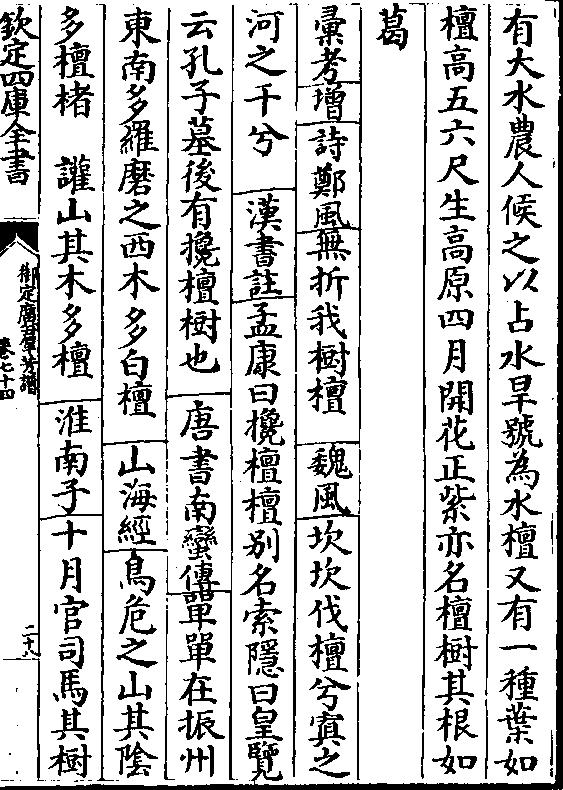 有大水農人候之以占水旱號為水檀又有一種葉如
檀高五六尺生高原四月開花正紫亦名檀樹其根如
葛
彙考增詩鄭風無折我樹檀　魏風坎坎伐檀兮寘之
河之干兮　漢書註孟康曰欃檀檀别名索隱曰皇覽
云孔子墓後有欃檀樹也　唐書南蠻傳單單在振州
東南多羅磨之西木多白檀　山海經鳥危之山其陰
多檀楮　讙山其木多檀　淮南子十月官司馬其樹
欽定四庫全書
御定廣群芳譜
卷七十四